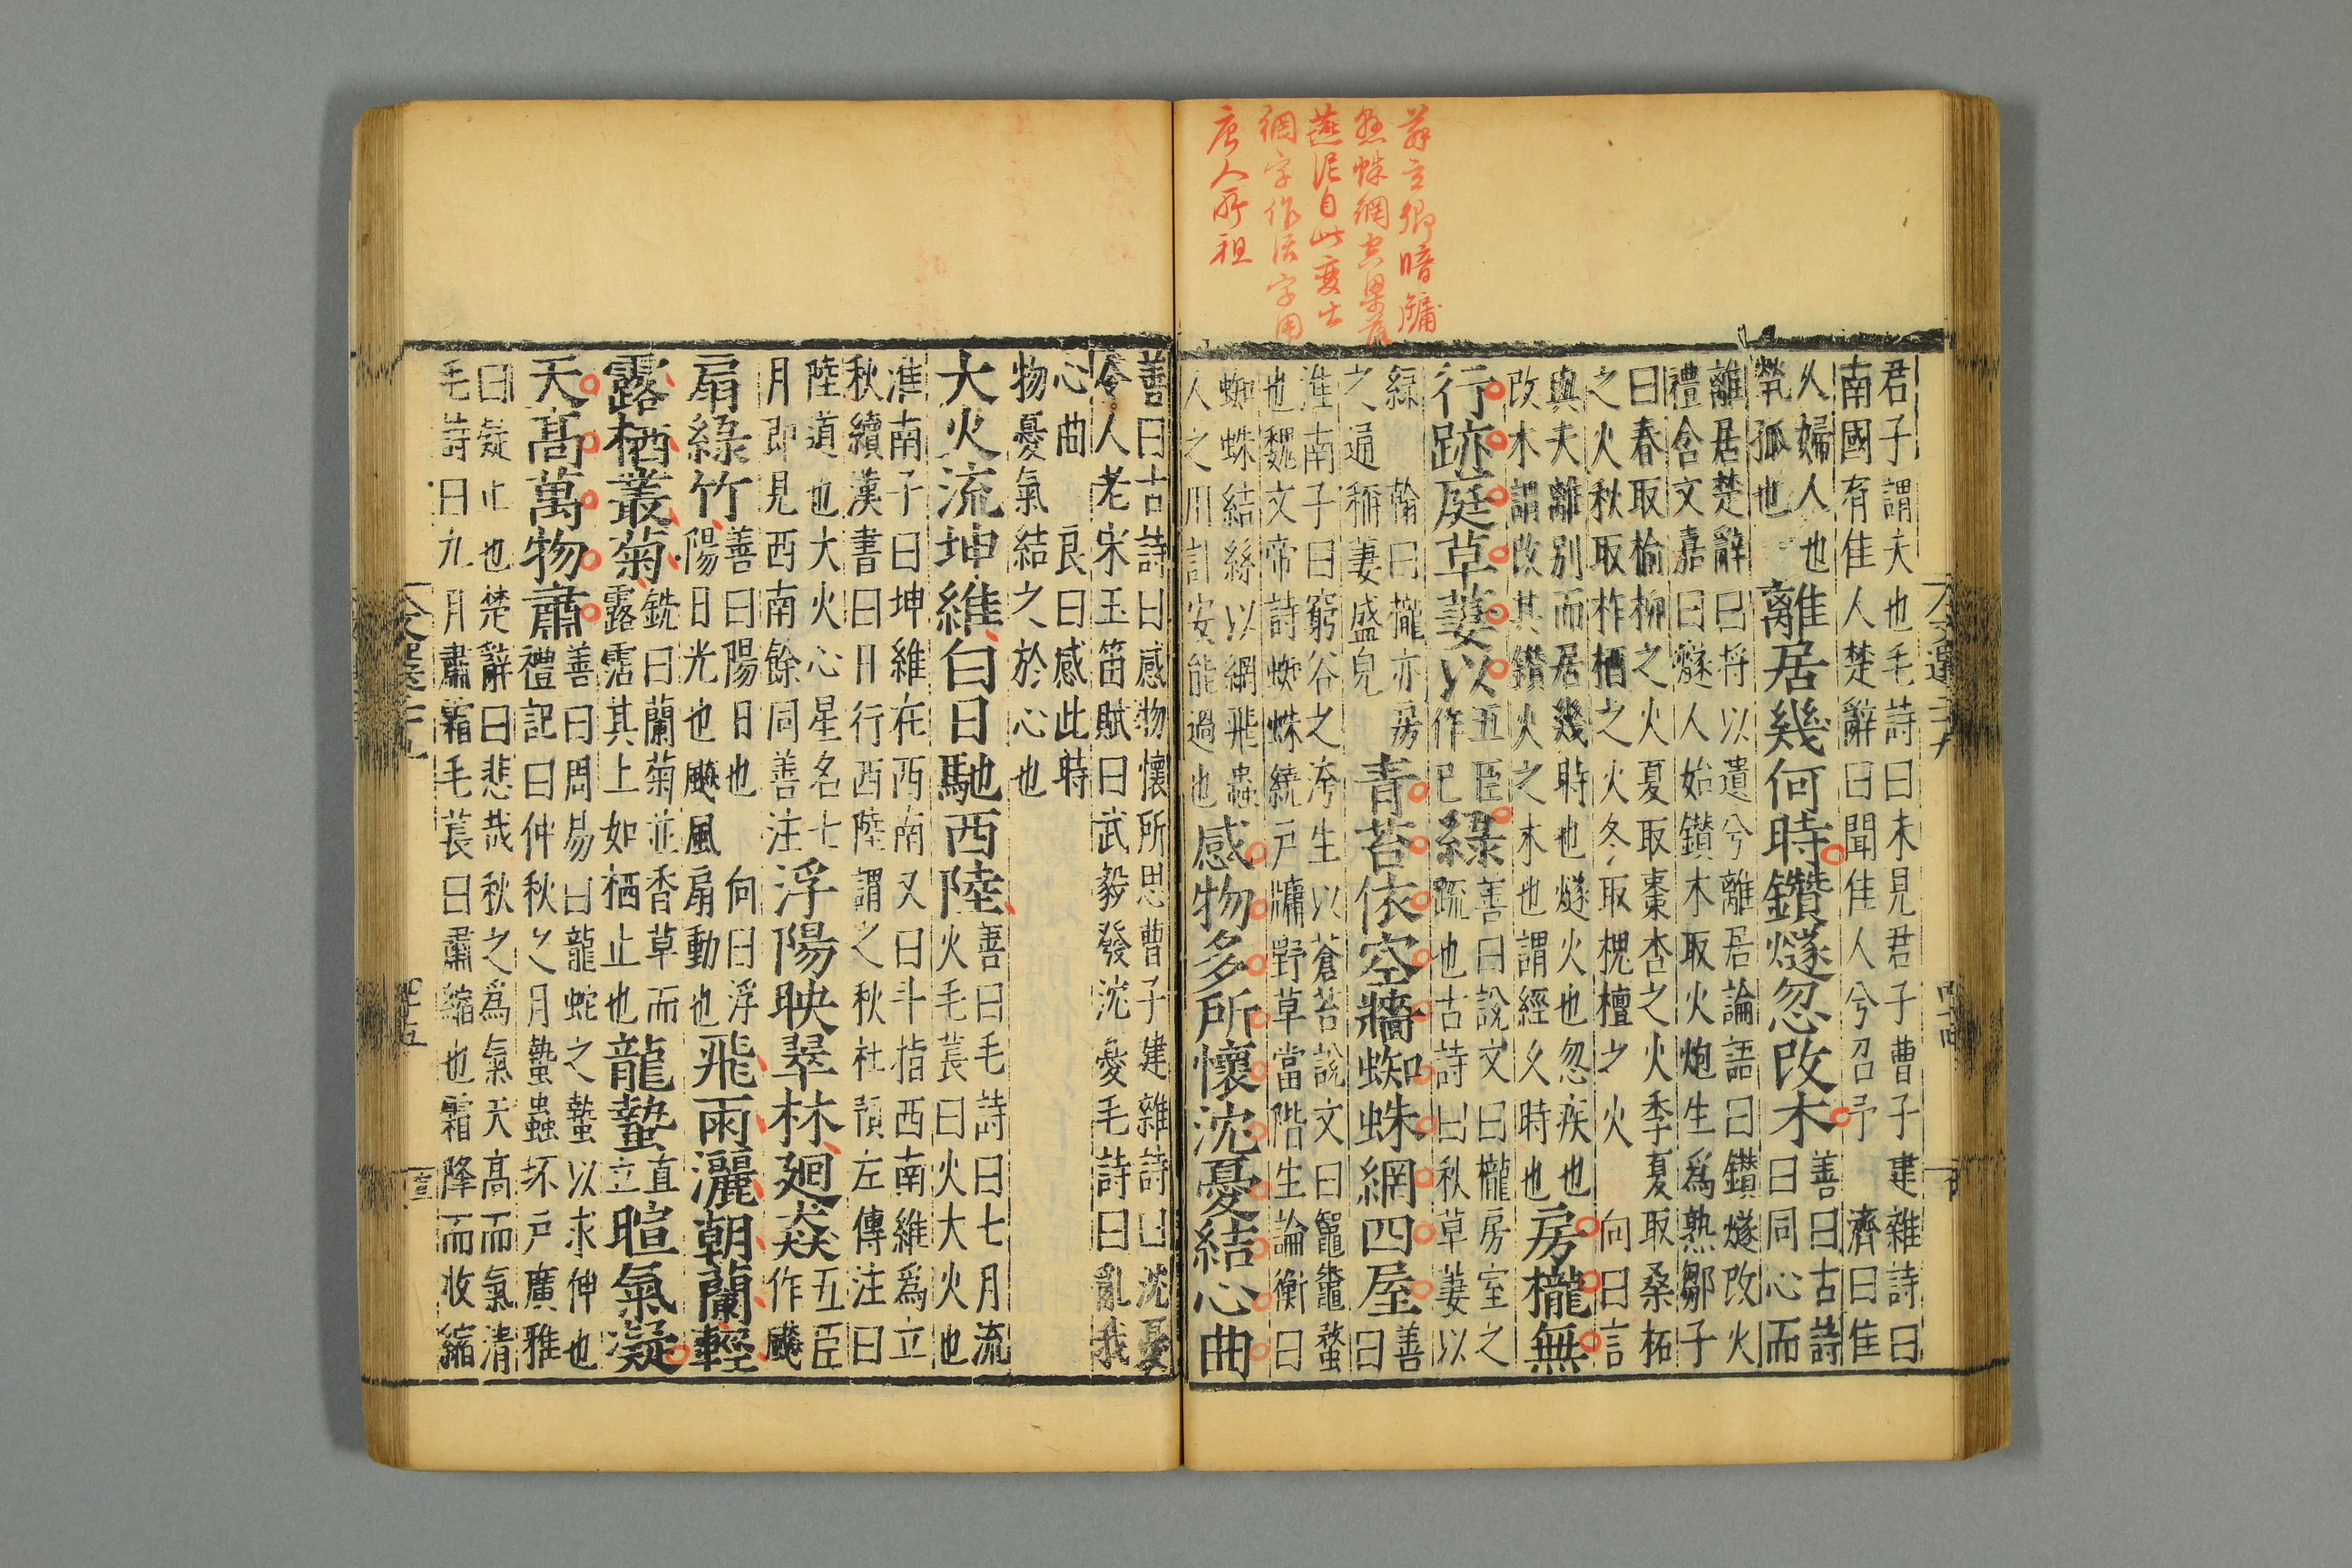 薛玄卿暗牖
懸蛛網空梁落
燕泥自此變出
網字作活字用
唐人所祖
君子謂夫也毛詩曰未見君子曹子建雜詩曰
南國有佳人楚辭曰聞佳人兮召予 濟曰佳
人婦人也
煢孤也
離居幾何時鑽燧忽改木
善曰古詩
曰同心而
離居楚辭曰將以遺兮離居論語曰鑽燧改火
禮含文嘉曰燧人始鑽木取火炮生爲熟鄒子
曰春取榆柳之火夏取棗杏之火季夏取桑柘
之火秋取柞楢之火冬取槐檀之火 向曰言
與夫離别而居幾時也燧火也忽疾也
改木謂改其鑽火之木也謂經久時也
房櫳無
行跡庭草萋以
五臣
作已
綠
善曰說文曰櫳房室之
疏也古詩曰秋草萋以
綠 翰曰櫳亦房
之通稱萋盛皃
青苔依空牆蜘蛛網四屋
善
曰
淮南子曰窮谷之洿生以蒼苔說文曰鼅鼄蝥
也魏文帝詩蜘蛛繞戶牖野草當階生論衡曰
蜘蛛結絲以網飛蟲
人之用計安能過也
感物多所懷沈憂結心曲
善曰古詩曰感物懷所思曹子建雜詩曰沈憂
令人老宋玉笛賦曰武毅發沈憂毛詩曰亂我
心曲 良曰感此時
物憂氣結之於心也
大火流坤維白日馳西陸
善曰毛詩曰七月流
火毛萇曰火大火也
淮南子曰坤維在西南又曰斗指西南維爲立
秋續漢書曰日行西陸謂之秋杜預左傳注曰
陸道也大火心星名七
月即見西南餘同善注
浮陽映翠林廻猋
五臣
作飈
扇綠竹
善曰陽日也 向曰浮
陽日光也飈風扇動也
飛雨灑朝蘭輕
露栖叢菊
銑曰蘭菊並香草而
露霑其上如栖止也
龍蟄
直
立
暄氣凝
天高萬物肅
善曰周易曰龍蛇之蟄以求伸也
禮記曰仲秋之月蟄蟲坏戶廣雅
曰凝止也楚辭曰悲哉秋之爲氣天高而氣清
毛詩曰九月肅霜毛萇曰肅縮也霜降而收縮